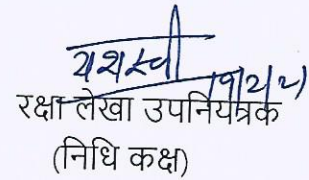 यशस्वी
रक्षा लेखा उपनियंत्रक
(निधि कक्ष)